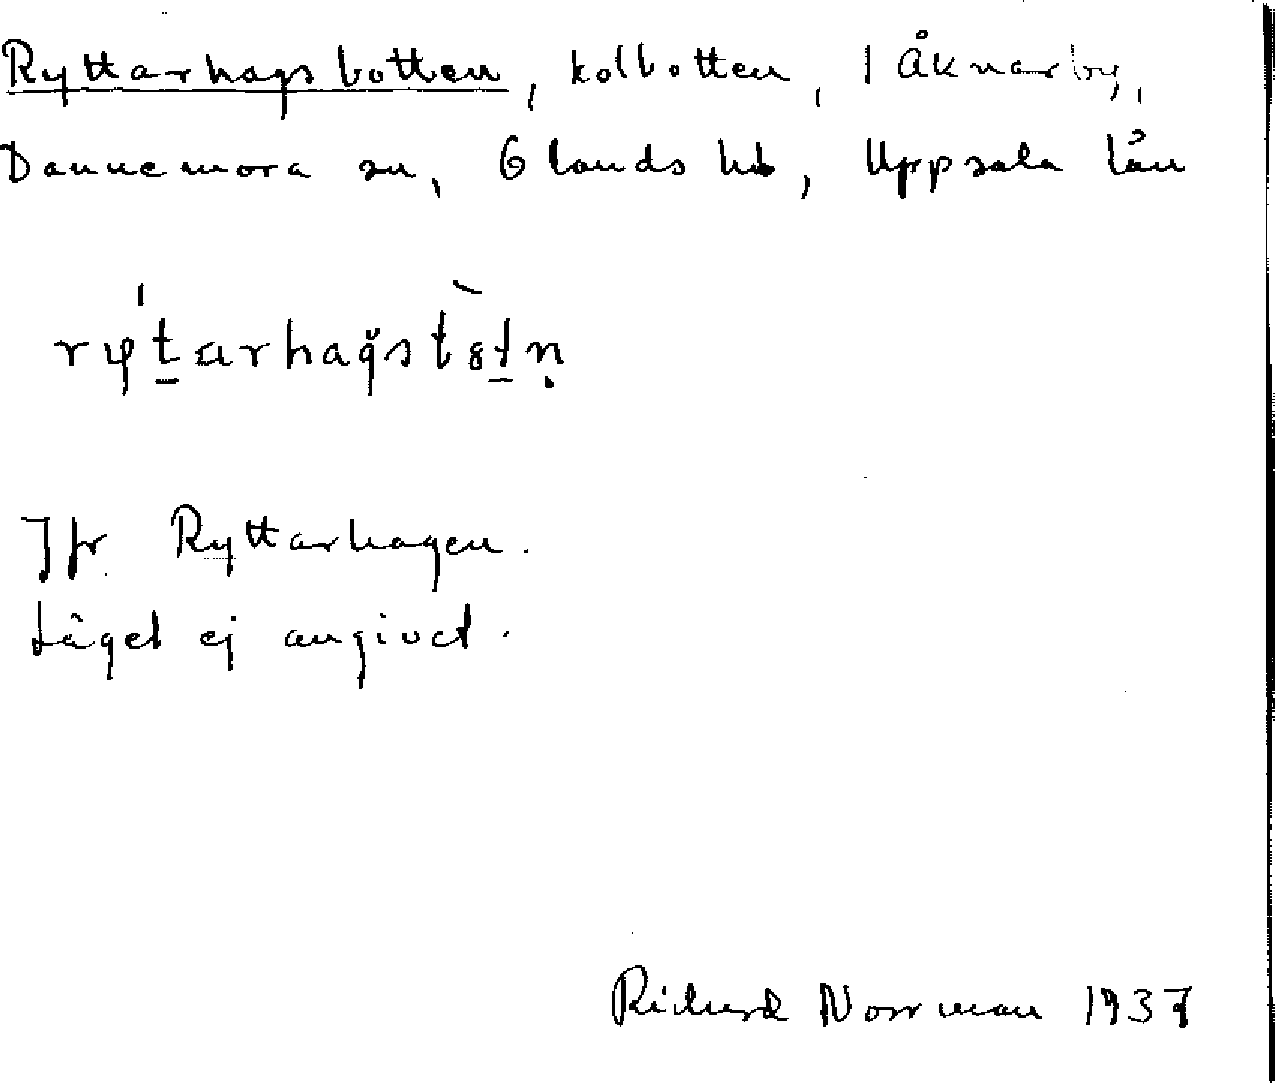 Ryttarhagsbotten, kolbotten, i Åknarby,
Dannemora sn, Olands hd, Uppsala län
Jfr Ryttarhagen.
Läget ej angivet.
Richard Norrman 1937